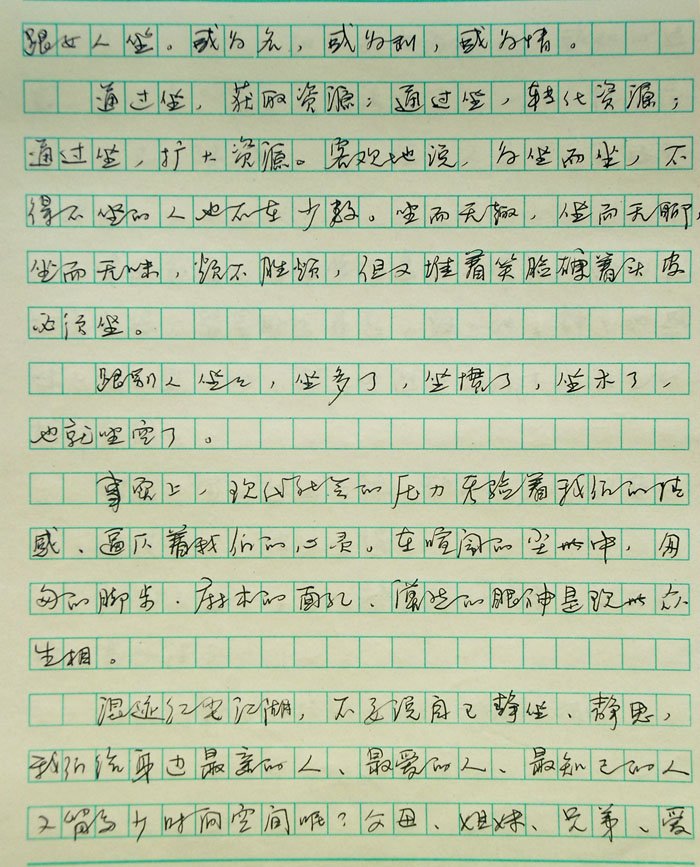 跟女人坐。或为名，或为利，或为情。
通过坐，获取资源；通过坐，转化资源；
通过坐，扩大资源。客观地说，为坐而坐，不
得不坐的人也不在少数。坐而无趣，坐而无聊，
坐而无味，烦不胜烦，但又堆着笑脸硬着头皮
必须坐。
跟别人坐久，坐多了，坐惯了，坐木了，
也就坐空了。
事实上，现代社会的压力考验着我们的情
感、逼仄着我们的心灵。在喧闹的尘世中，匆
匆的脚步、麻木的面孔、漠然的眼神是现世众
生相。
混迹红尘江湖，不要说自己静坐、静思，
我们给身边最亲的人、最爱的人、最知己的人
又留多少时间空间呢？父母、姐妹、兄弟、爱